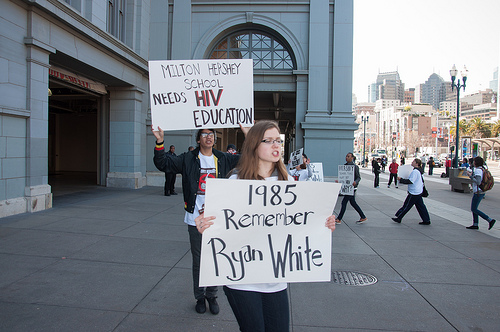 MILTON HERSHEY
SCHOOL
NEEDS HIV
EDUCATION
1985
Remember
Ryan White